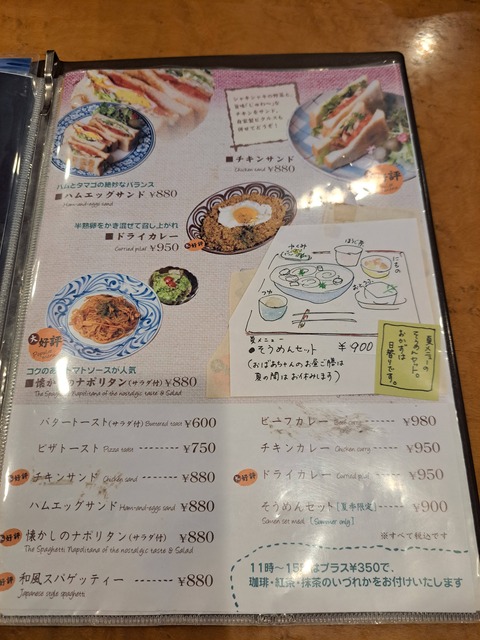 シャキシャキの野菜と、
チキンサンド
Chicken sand ¥880
好評
ハムとタマゴの絶妙なバランス
ハムエッグサンド ¥880
Ham-and-eggs sand
半熟卵をかき混ぜて召し上がれ
ドライカレー
Curried pilaf ¥950
好評
大好評
コクの トマトソースが人気
懐かしのナポリタン(サラダ付) ¥880
The Spaghetti Napolitana of the nostalgic taste & Salad
つゆ
夏メニュー
●そうめんセット ¥900
(おばあちゃんのお昼ご膳は
夏の間はお休みします)
夏メニューの
そうめんセット。
おかずは
日替りです。
バタートースト(サラダ付) Buttered toast ¥600
ピザトースト Pizza toast ¥750
好評 チキンサンド Chicken sand ¥880
ハムエッグサンド Ham-and-eggs sand ¥880
好評 懐かしのナポリタン(サラダ付) ¥880
The Spaghetti Napolitana of the nostalgic taste & Salad
好評 和風スパゲッティー ¥880
Japanese style spaghetti
ビーフカレー Beef curry ¥980
チキンカレー Chicken curry ¥950
好評 ドライカレー Curried pilaf ¥950
そうめんセット[夏季限定] ¥900
Somen set meal [Summer only]
※すべて税込です
11時〜15時はプラス¥350で、
珈琲・紅茶・抹茶のいづれかをお付けいたします